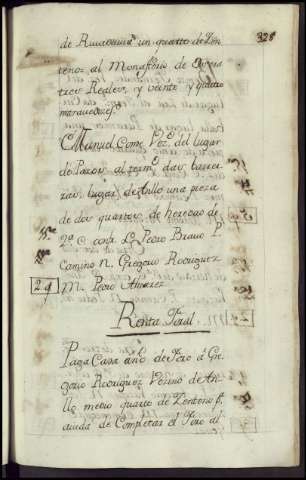 328
de Rivadavia un quarto de Zen
teno: al Monasterio de
tres Reales y veinte y quatro
maravedises
Manuel Gomez Vez.º del lugar
de Pazos al term.º das barrei
ras lugar de Anllo una pieza
de dos quartos de
2.ª C. conf. L. Pedro Bravo P.
Camino N. Gregorio Rodriguez
2 q M. Pedro Alvarez
Renta Foral
Paga Cada año de Foro á Gre
gorio Rodriguez Vecino de An
llo medio quarto de Zenteno p.ª
aiuda de Completar el Foro al